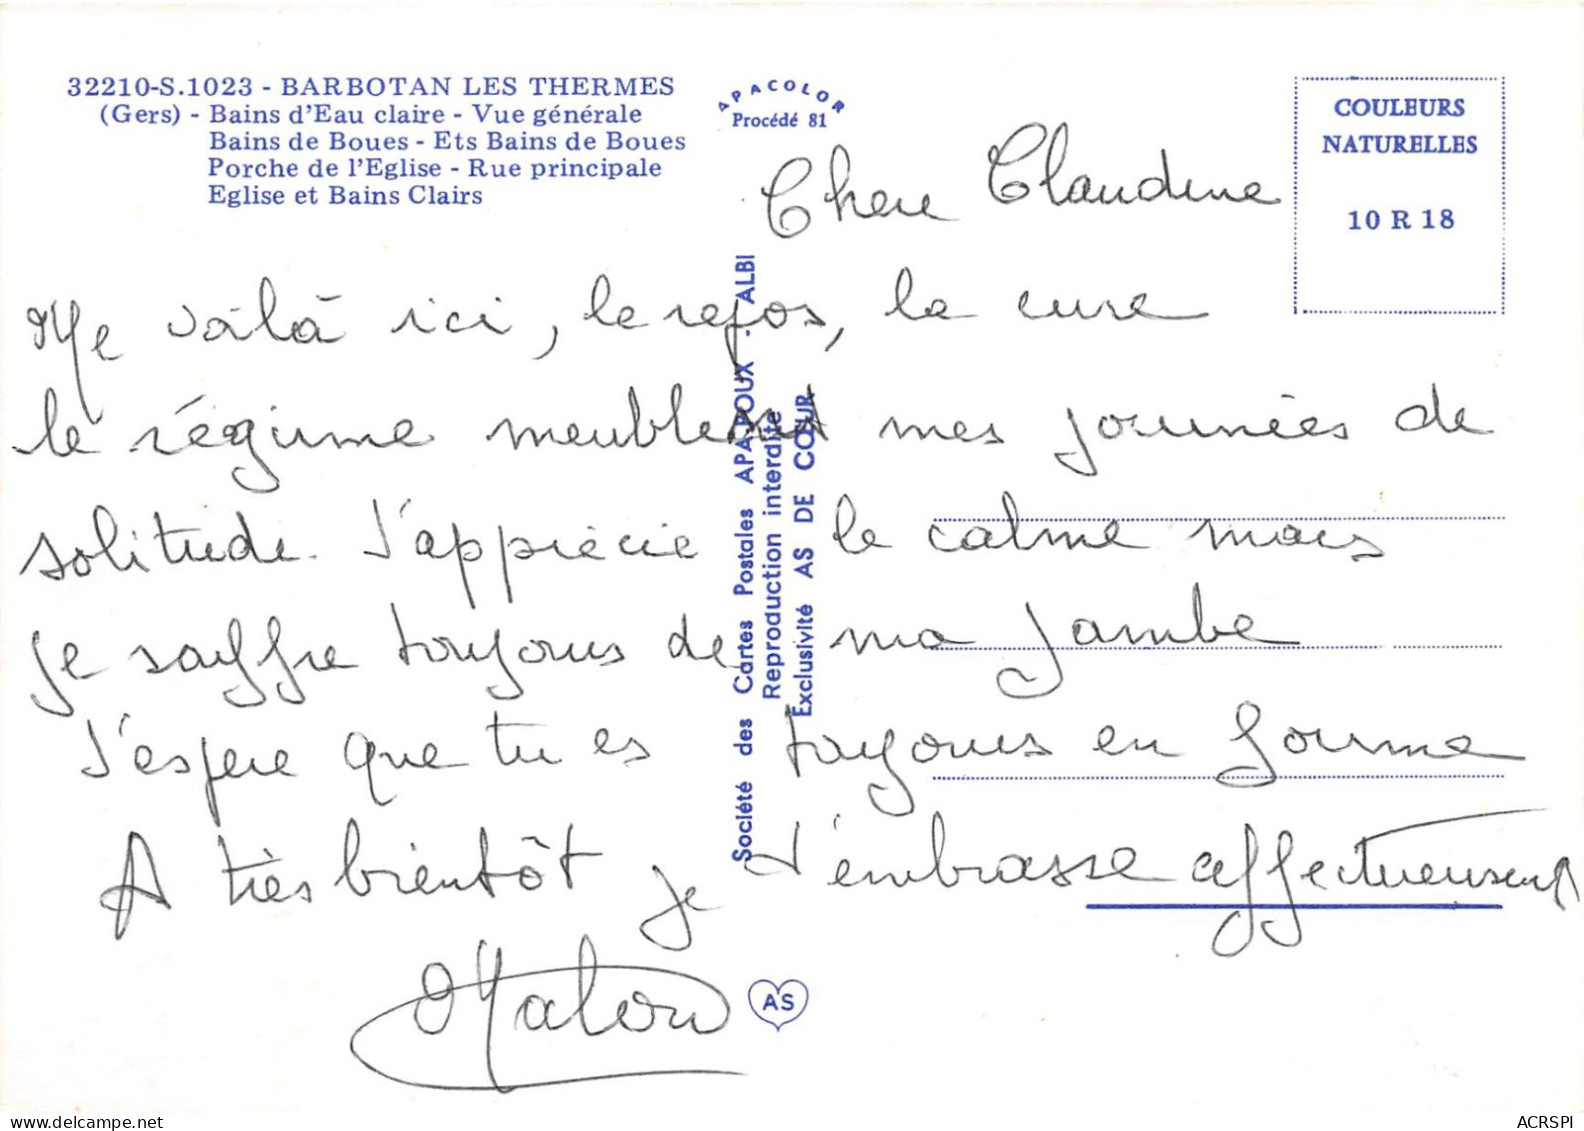 32210-S.1023 - BARBOTAN LES THERMES
(Gers) - Bains d'Eau claire - Vue générale
Bains de Boues - Ets Bains de Boues
Porche de l'Eglise - Rue principale
Eglise et Bains Clairs
APACOLOR
Procédé 81
COULEURS
NATURELLES
10 R 18
Chere Claudine
Me voilà ici, le repos, la cure
le régime meublent mes journées de
solitude. J'apprécie le calme mais
je souffre toujours de ma jambe
J'espere que tu es toujours en forme
A très bientôt je t'embrasse affectueusement
Malou
Société des Cartes Postales APA-POUX - ALBI
Reproduction interdite
Exclusivité AS DE CŒUR
AS
ACRSPI